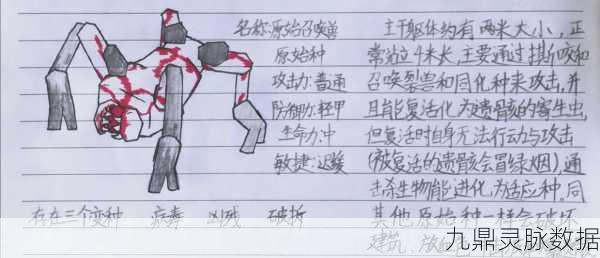 名称:原始召唤兽
原始种
攻击力:普通
防御力:轻甲
生命力:中
敏捷:迟缓
主干躯体约有两米大小,正
常站立4米长,主要通过撕咬和
召唤裂兽和同化种来攻击,并
且能复活化为遗骸的寄生虫,
但复活时自身无法行动与攻击
(被复活的遗骸会冒绿烟),通
击杀生物能进化为适应种。同
其他原始种一样会破坏
建筑、放
存在三个变种 病毒 凶残 破折
九鼎灵脉数据